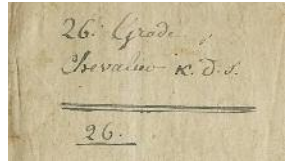 26: Grade.
Chevalier K. d. S.
26.